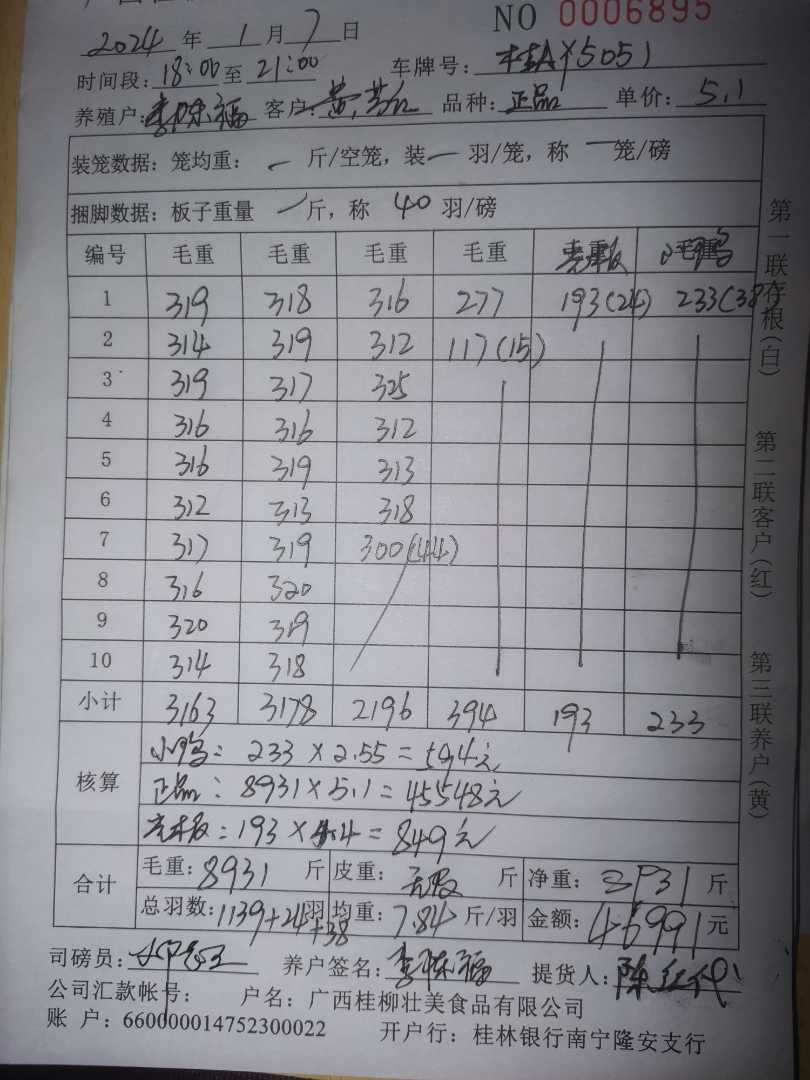 NO 0006895
2024 年 1 月 7 日
时间段: 18:00 至 21:00 车牌号: 桂AY5051
养殖户: 李陈福 客户: 黄 品种: 正品 单价: 5.1
装笼数据: 笼均重: 一 斤/空笼, 装 一 羽/笼, 称 一 笼/磅
捆脚数据: 板子重量 一 斤, 称 40 羽/磅
编号 毛重 毛重 毛重 毛重 壳重板 小鸭
1 319 318 316 277 193(24) 233(38)
2 314 319 312 117(15)
3 319 317 325
4 316 316 312
5 316 319 313
6 312 313 318
7 317 319 300(44)
8 316 320
9 320 319
10 314 318
小计 3163 3178 2196 394 193 233
核算
小鸭: 233 × 2.55 = 594元
正品: 8931 × 5.1 = 45548元
壳板: 193 × 4.4 = 849元
合计
毛重: 8931 斤 皮重: 斤 净重: 8931 斤
总羽数: 1139+24+38 羽 均重: 7.84 斤/羽 金额: 46991 元
司磅员: 养户签名: 李陈福 提货人: 陈红代
公司汇款帐号: 户名: 广西桂柳壮美食品有限公司
账 户: 660000014752300022 开户行: 桂林银行南宁隆安支行
第一联存根(白)
第二联客户(红)
第三联养户(黄)